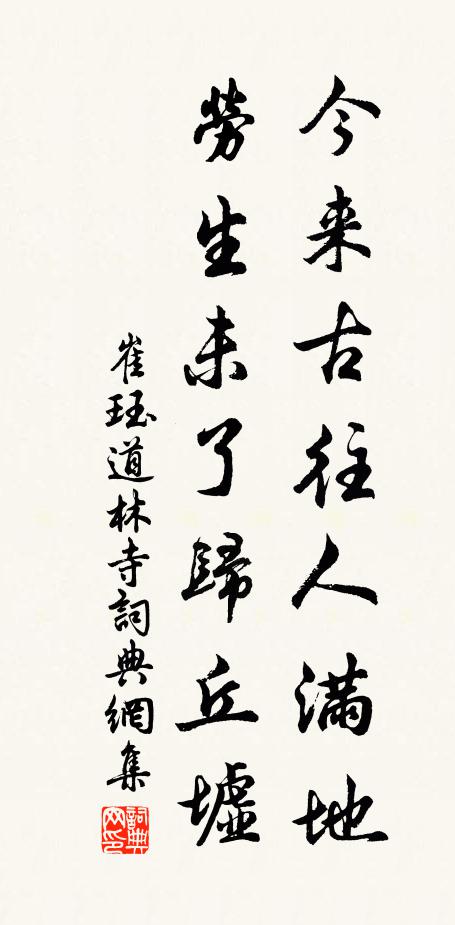 今来古往人滿地
勞生未了歸丘墟
崔珏道林寺詞典網集
詞典網印